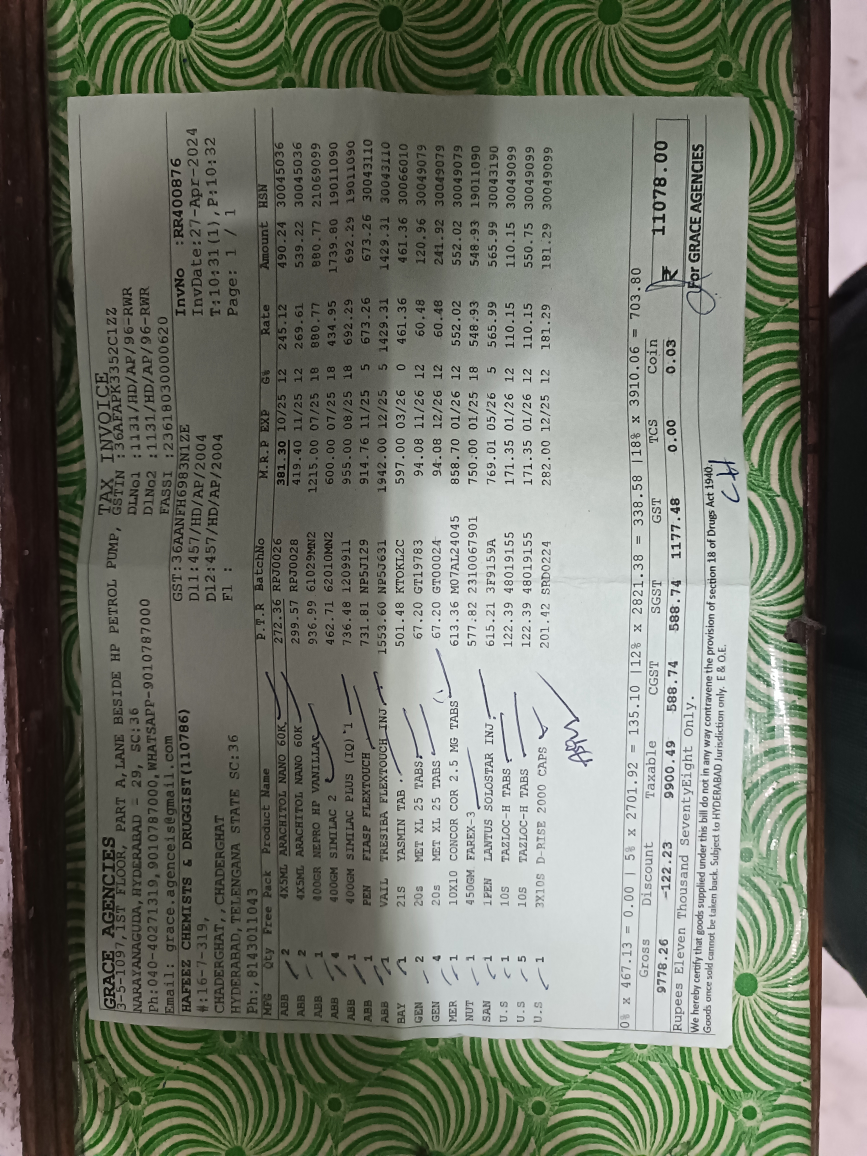 TAX INVOICE
GRACE AGENCIES
3-5-1097,1ST FLOOR, PART A,LANE BESIDE HP PETROL PUMP,
NARAYANAGUDA,HYDERABAD = 29, SC:36
Ph:040-40271319,9010787000,WHATSAPP-9010787000
Email: grace.agenceis@gmail.com
GSTIN :36AFAPK3352C1ZZ
DLNo1 :1131/HD/AP/96-RWR
DlNo2 :1131/HD/AP/96-RWR
FASSI :23618030000620
HAFEEZ CHEMISTS & DRUGGIST(110786)
#:16-7-319,
CHADERGHAT,,CHADERGHAT
HYDERABAD,TELENGANA STATE SC:36
Ph:,8143011043
GST:36AANFH6983N1ZE
Dl1:457/HD/AP/2004
Dl2:457/HD/AP/2004
Fl :
InvNo :RR400876
InvDate:27-Apr-2024
T:10:31(1),P:10:32
Page: 1 / 1
MFG Qty Free Pack Product Name P.T.R BatchNo M.R.P EXP G% Rate Amount HSN
ABB 2 4X5ML ARACHITOL NANO 60K 272.36 RPJ0026 381.30 10/25 12 245.12 490.24 30045036
ABB 2 4X5ML ARACHITOL NANO 60K 299.57 RPJ0028 419.40 11/25 12 269.61 539.22 30045036
ABB 1 400GR NEPRO HP VANILLA 936.99 61029MN2 1215.00 07/25 18 880.77 880.77 21069099
ABB 4 400GM SIMILAC 2 462.71 62010MN2 600.00 07/25 18 434.95 1739.80 19011090
ABB 1 400GM SIMILAC PLUS (IQ) 1 736.48 1209911 955.00 08/25 18 692.29 692.29 19011090
ABB 1 PEN FIASP FLEXTOUCH 731.81 NP5J129 914.76 11/25 5 673.26 673.26 30043110
ABB 1 VAIL TRESIBA FLEXTOUCH INJ 1553.60 NP5J631 1942.00 12/25 5 1429.31 1429.31 30043110
BAY 1 21S YASMIN TAB 501.48 KTOKL2C 597.00 03/26 0 461.36 461.36 30066010
GEN 2 20s MET XL 25 TABS 67.20 GT19783 94.08 11/26 12 60.48 120.96 30049079
GEN 4 20s MET XL 25 TABS 67.20 GT00024 94.08 12/26 12 60.48 241.92 30049079
MER 1 10X10 CONCOR COR 2.5 MG TABS 613.36 M07AL24045 858.70 01/26 12 552.02 552.02 30049079
NUT 1 450GM FAREX-3 577.82 2310067901 750.00 01/25 18 548.93 548.93 19011090
SAN 1 1PEN LANTUS SOLOSTAR INJ 615.21 3F9159A 769.01 05/26 5 565.99 565.99 30043190
U.S 1 10S TAZLOC-H TABS 122.39 48019155 171.35 01/26 12 110.15 110.15 30049099
U.S 5 10S TAZLOC-H TABS 122.39 48019155 171.35 01/26 12 110.15 550.75 30049099
U.S 1 3X10S D-RISE 2000 CAPS 201.42 SRD0224 282.00 12/25 12 181.29 181.29 30049099
0% x 467.13 = 0.00 | 5% x 2701.92 = 135.10 |12% x 2821.38 = 338.58 |18% x 3910.06 = 703.80
Gross Discount Taxable CGST SGST GST TCS Coin
9778.26 -122.23 9900.49 588.74 588.74 1177.48 0.00 0.03 ₹ 11078.00
Rupees Eleven Thousand SeventyEight Only.
We hereby certify that goods supplied under this bill do not in any way contravene the provision of section 18 of Drugs Act 1940.
Goods once sold cannot be taken back. Subject to HYDERABAD Jurisdiction only. E & O.E.
For GRACE AGENCIES